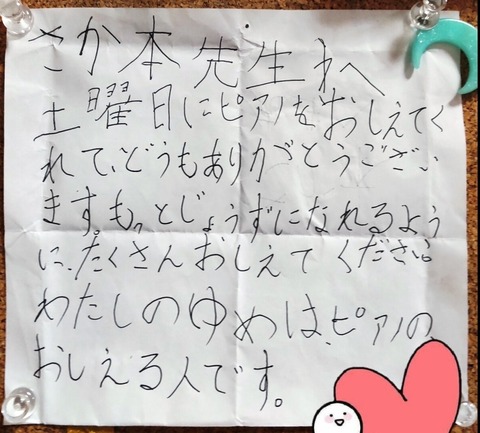 さか本先生へ
土曜日にピアノをおしえてく
れて、どうもありがとうござい
ます。もっとじょうずになれるよう
に、たくさんおしえてください。
わたしのゆめは、ピアノの、
おしえる人です。